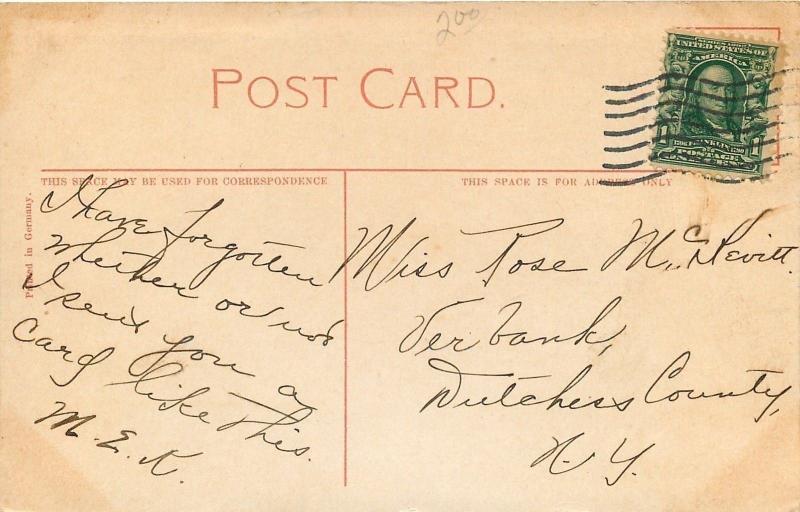 200
POST CARD.
SERIES 1902
UNITED STATES OF
AMERICA
FRANKLIN
POSTAGE
ONE CENT
THIS SPACE MAY BE USED FOR CORRESPONDENCE
THIS SPACE IS FOR ADDRESS ONLY
Printed in Germany.
I have forgotten
whether or not
I sent you a
card like this.
M. E. K.
Miss Rose McDevitt.
Verbank,
Dutchess County,
N. Y.